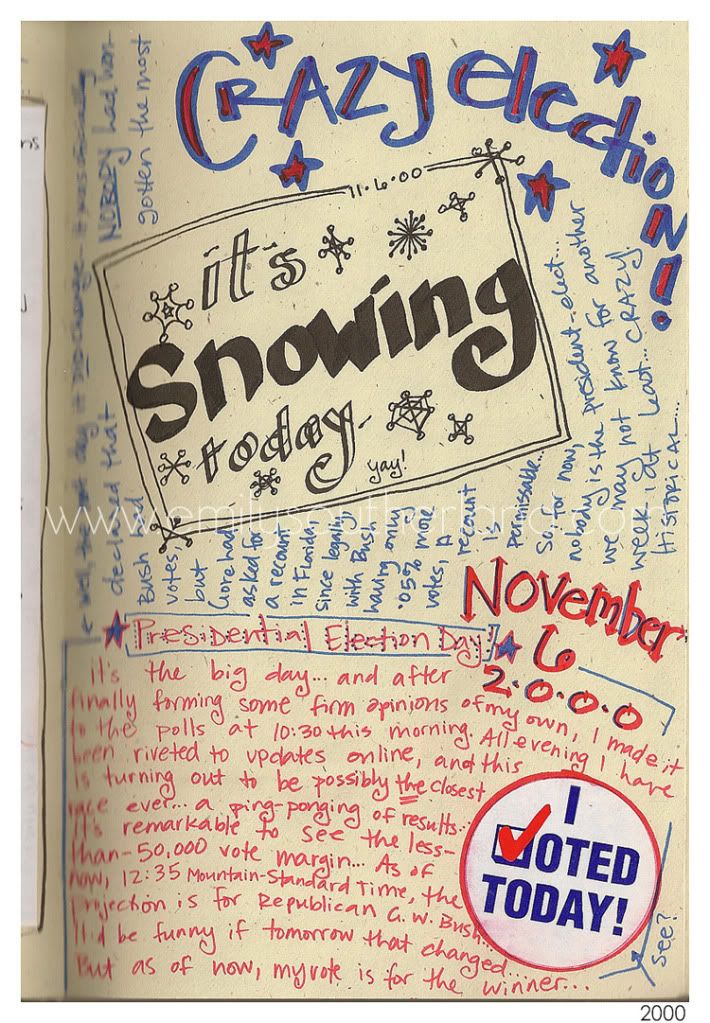 CRAZY election!
11·6·00
it's
snowing
today.
yay!
www.emilysoutherland.com
NOVember
6
2·0·0·0
Presidential Election Day!
it's the big day... and after
finally forming some firm opinions of my own, I made it
to the polls at 10:30 this morning. All evening I have
been riveted to updates online, and this
is turning out to be possibly the closest
race ever... a ping-ponging of results...
it's remarkable to see the less-
than-50,000 vote margin... As of
now, 12:35 Mountain-Standard Time, the
projection is for Republican G.W. Bush...
It'd be funny if tomorrow that changed...
But as of now, my vote is for the winner...
I
VOTED
TODAY!
see?
well, the next day it DID change - it was
declared that NOBODY had won-
Bush had gotten the most
votes,
but
Gore had
asked for
a recount
in Florida,
since legally
with Bush
having only
.05% more
votes, A
recount
is
permissable...
So for now,
nobody is the president-elect...
we may not know for another
week at least... CRAZY.
Historical...
2000